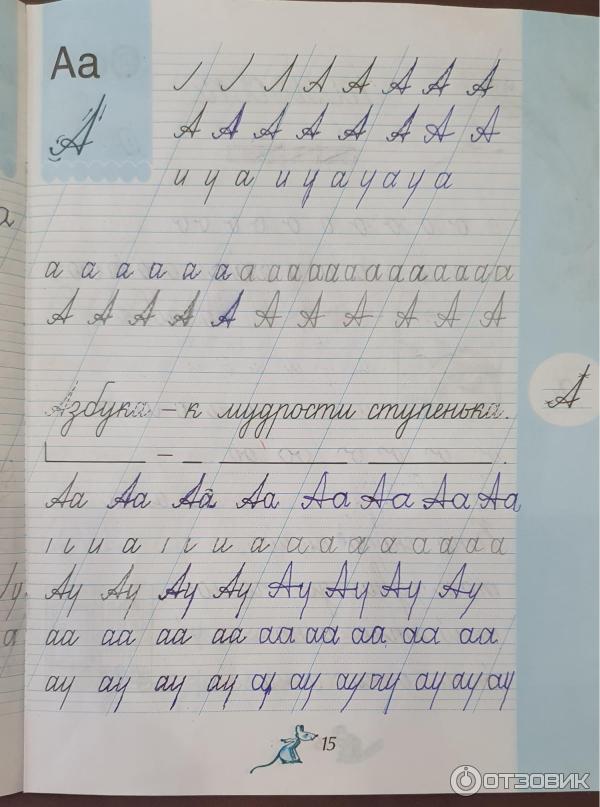 Аа
А
Л А А А А А
А А А А А А А А
и у а и у а у а у а
а а а а а а а а а а а а а а а а а а а а
А А А А А А А А А А А
Азбука – к мудрости ступенька.
–
А
Аа Аа Аа Аа Аа Аа Аа Аа
ı ι и а ı ι и а а а а а а а а а
Ау Ау Ау Ау Ау Ау Ау Ау
аа аа аа аа аа аа аа аа аа
ау ау ау ау ау ау ау ау ау ау ау
15
ОТЗОВИК